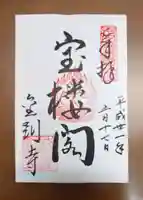 奉拝
平成廿一年
五月十七日
宝楼閣
金剖寺